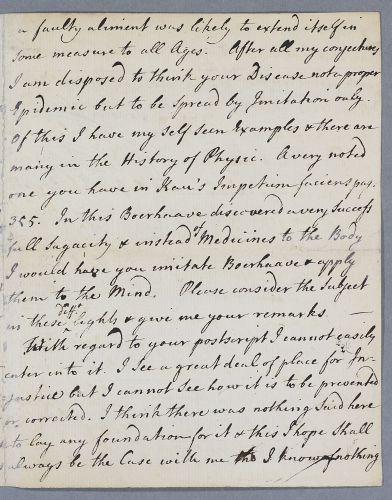 a faulty aliment was likely to extend itself in
some measure to all Ages. After all my conjectures
I am disposed to think your Disease not a proper
Epidemic but to be spread by Imitation only.
Of this I have my self seen Examples & there are
many in the History of Physic. A very noted
one you have in Kau's Impetum faciens pag.
355. In this Boerhaave discovered a very success
full Sagacity & instead of Medicines to the Body
I would have you imitate Boerhaave & apply
them to the Mind. Please consider the subject
in these lights & give me your remarks —
With regard to your postscript I cannot easily
enter into it. I see a great deal of place for In-
justice but I cannot see how it is to be prevented
or corrected. I think there was nothing said here
to lay any foundation for it & this I hope shall
always be the Case with me I know of nothing